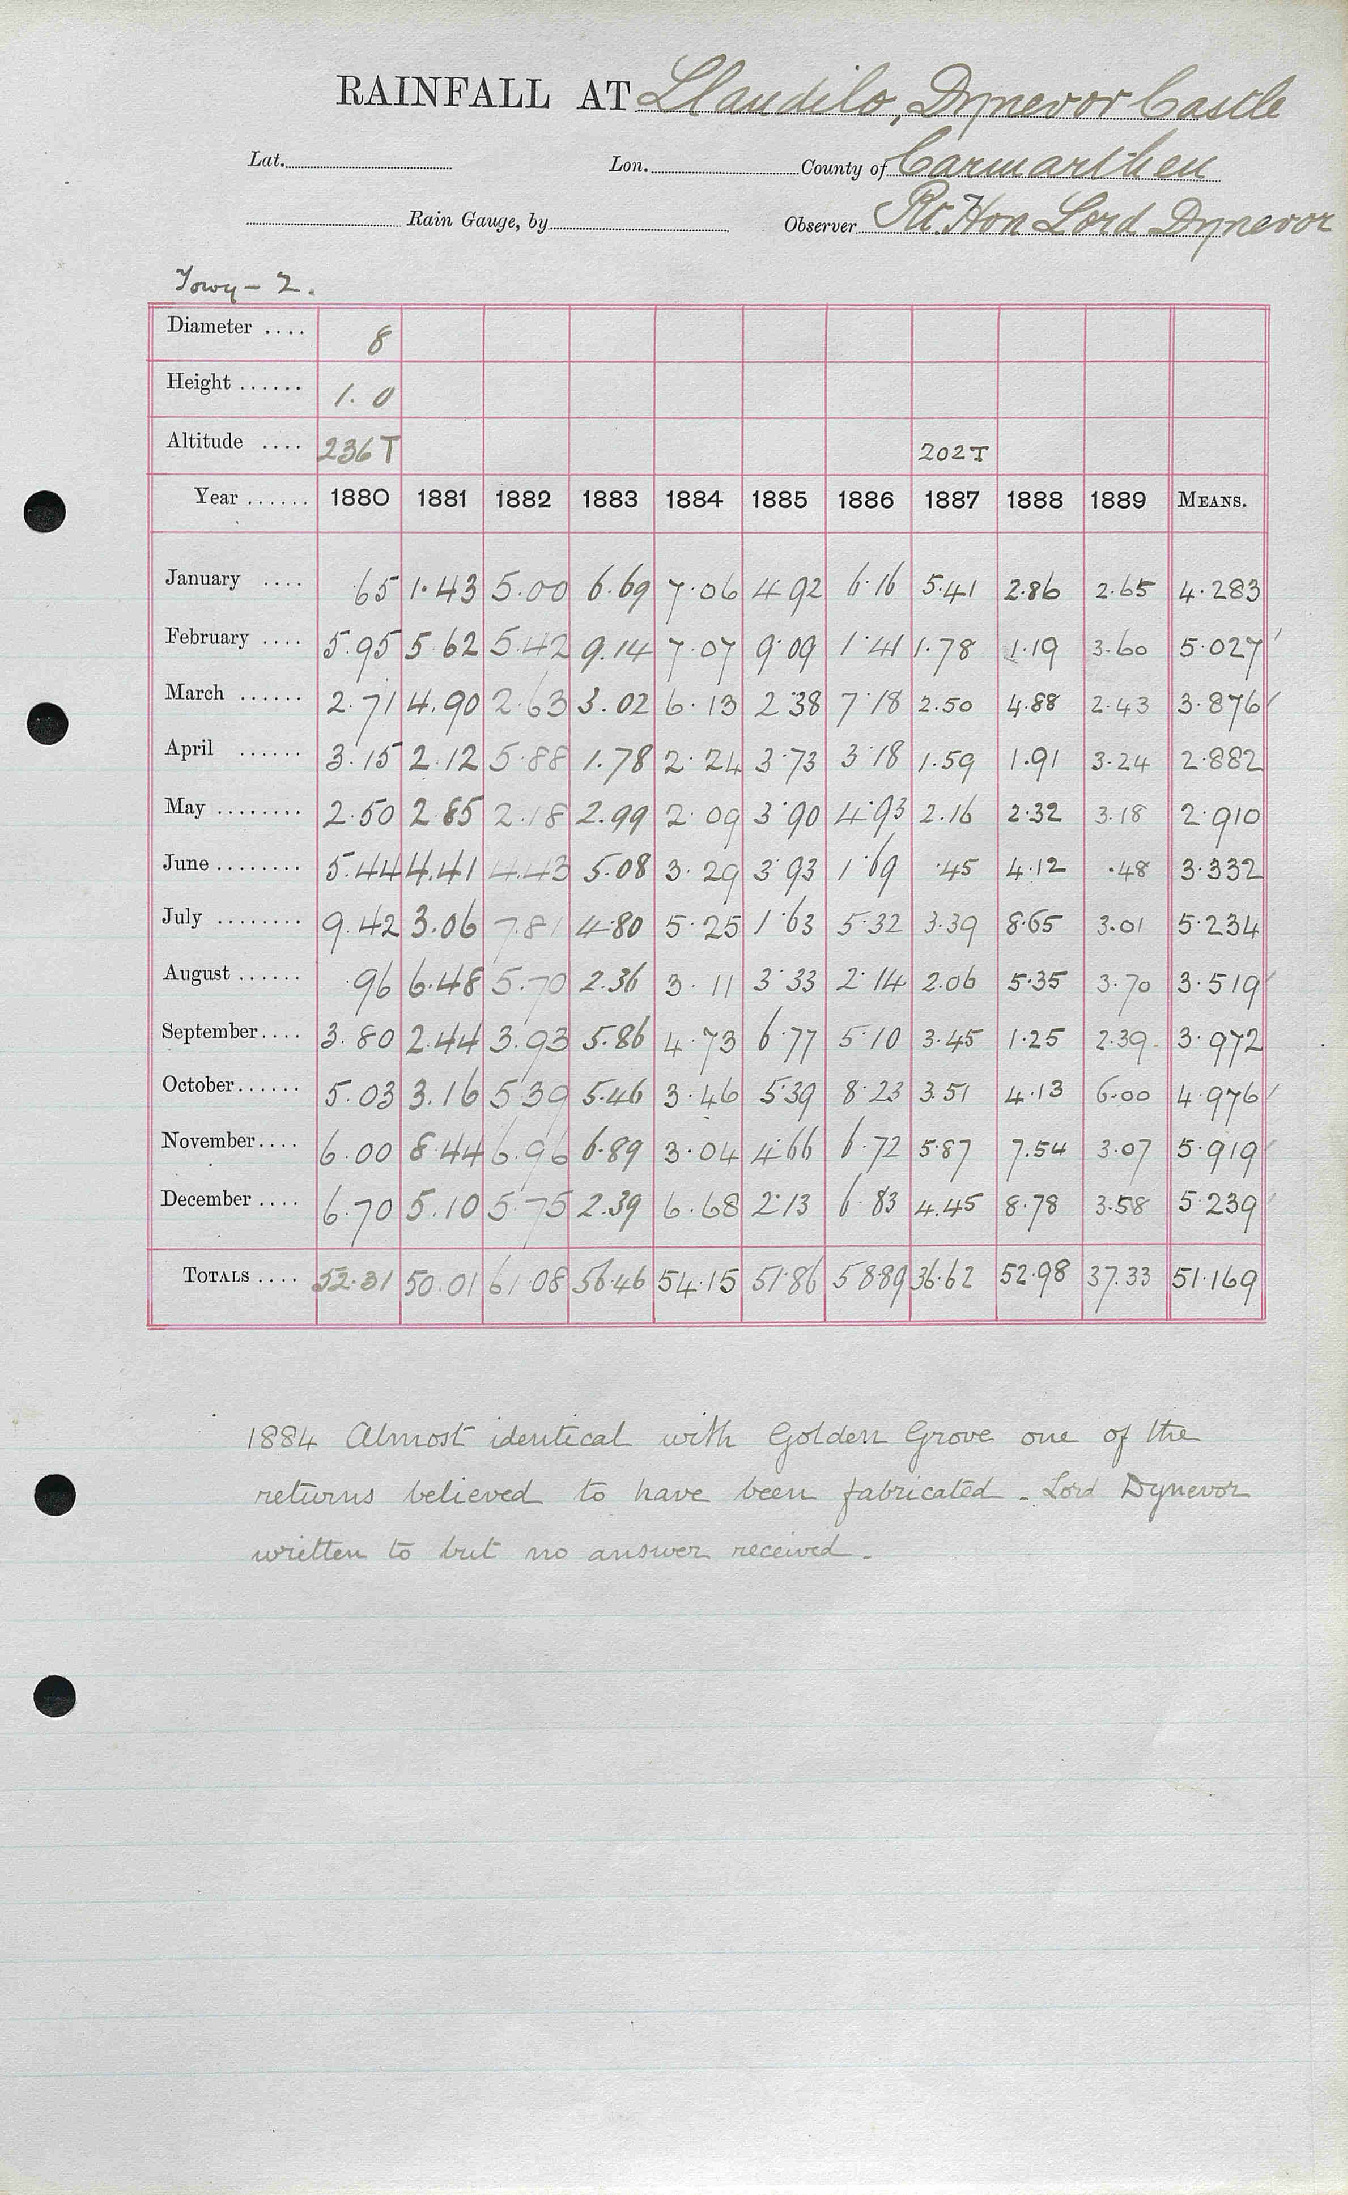 RAINFALL AT Llandilo, Dynevor Castle
Lat. Lon. County of Carmarthen
Rain Gauge, by Observer Rt. Hon Lord Dynevor
Towy - 2.
Diameter .... 8
Height ...... 1.0
Altitude .... 236T 202T
Year ...... 1880 1881 1882 1883 1884 1885 1886 1887 1888 1889 MEANS.
January .... 65 1.43 5.00 6.69 7.06 4.92 6.16 5.41 2.86 2.65 4.283
February .... 5.95 5.62 5.42 9.14 7.07 9.09 1.41 1.78 1.19 3.60 5.027
March ...... 2.71 4.90 2.63 3.02 6.13 2.38 7.18 2.50 4.88 2.43 3.876
April ...... 3.15 2.12 5.88 1.78 2.24 3.73 3.18 1.59 1.91 3.24 2.882
May ........ 2.50 2.85 2.18 2.99 2.09 3.90 4.93 2.16 2.32 3.18 2.910
June ........ 5.44 4.41 4.43 5.08 3.29 3.93 1.69 .45 4.12 .48 3.332
July ........ 9.42 3.06 7.81 4.80 5.25 1.63 5.32 3.39 8.65 3.01 5.234
August ...... .96 6.48 5.70 2.36 3.11 3.33 2.14 2.06 5.35 3.70 3.519
September .... 3.80 2.44 3.93 5.86 4.73 6.77 5.10 3.45 1.25 2.39 3.972
October ...... 5.03 3.16 5.39 5.46 3.46 5.39 8.23 3.51 4.13 6.00 4.976
November .... 6.00 8.44 6.96 6.89 3.04 4.66 6.72 5.87 7.54 3.07 5.919
December .... 6.70 5.10 5.75 2.39 6.68 2.13 6.83 4.45 8.78 3.58 5.239
TOTALS .... 52.31 50.01 61.08 56.46 54.15 51.86 58.89 36.62 52.98 37.33 51.169
1884 Almost identical with Golden Grove one of the
returns believed to have been fabricated - Lord Dynevor
written to but no answer received -